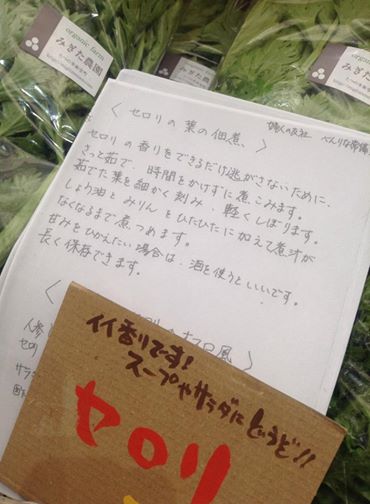 organic farm
みぎた農園
みぎた農園
organic farm
みぎた
〈 セロリの葉の佃煮、 〉
セロリの香りをできるだけ逃がさないために、
さっと茹で、時間をかけずに煮こみます。
茹でた葉を細かく刻み、軽くしぼります。
しょう油とみりんをひたひたに加えて煮汁が
なくなるまで煮つめます。
甘みをひかえたい場合は、酒を使うといいです。
長く保存できます。
風 〉
人参
セロリ
イイ香りです!
スープやサラダにどうぞ!!
セロリ